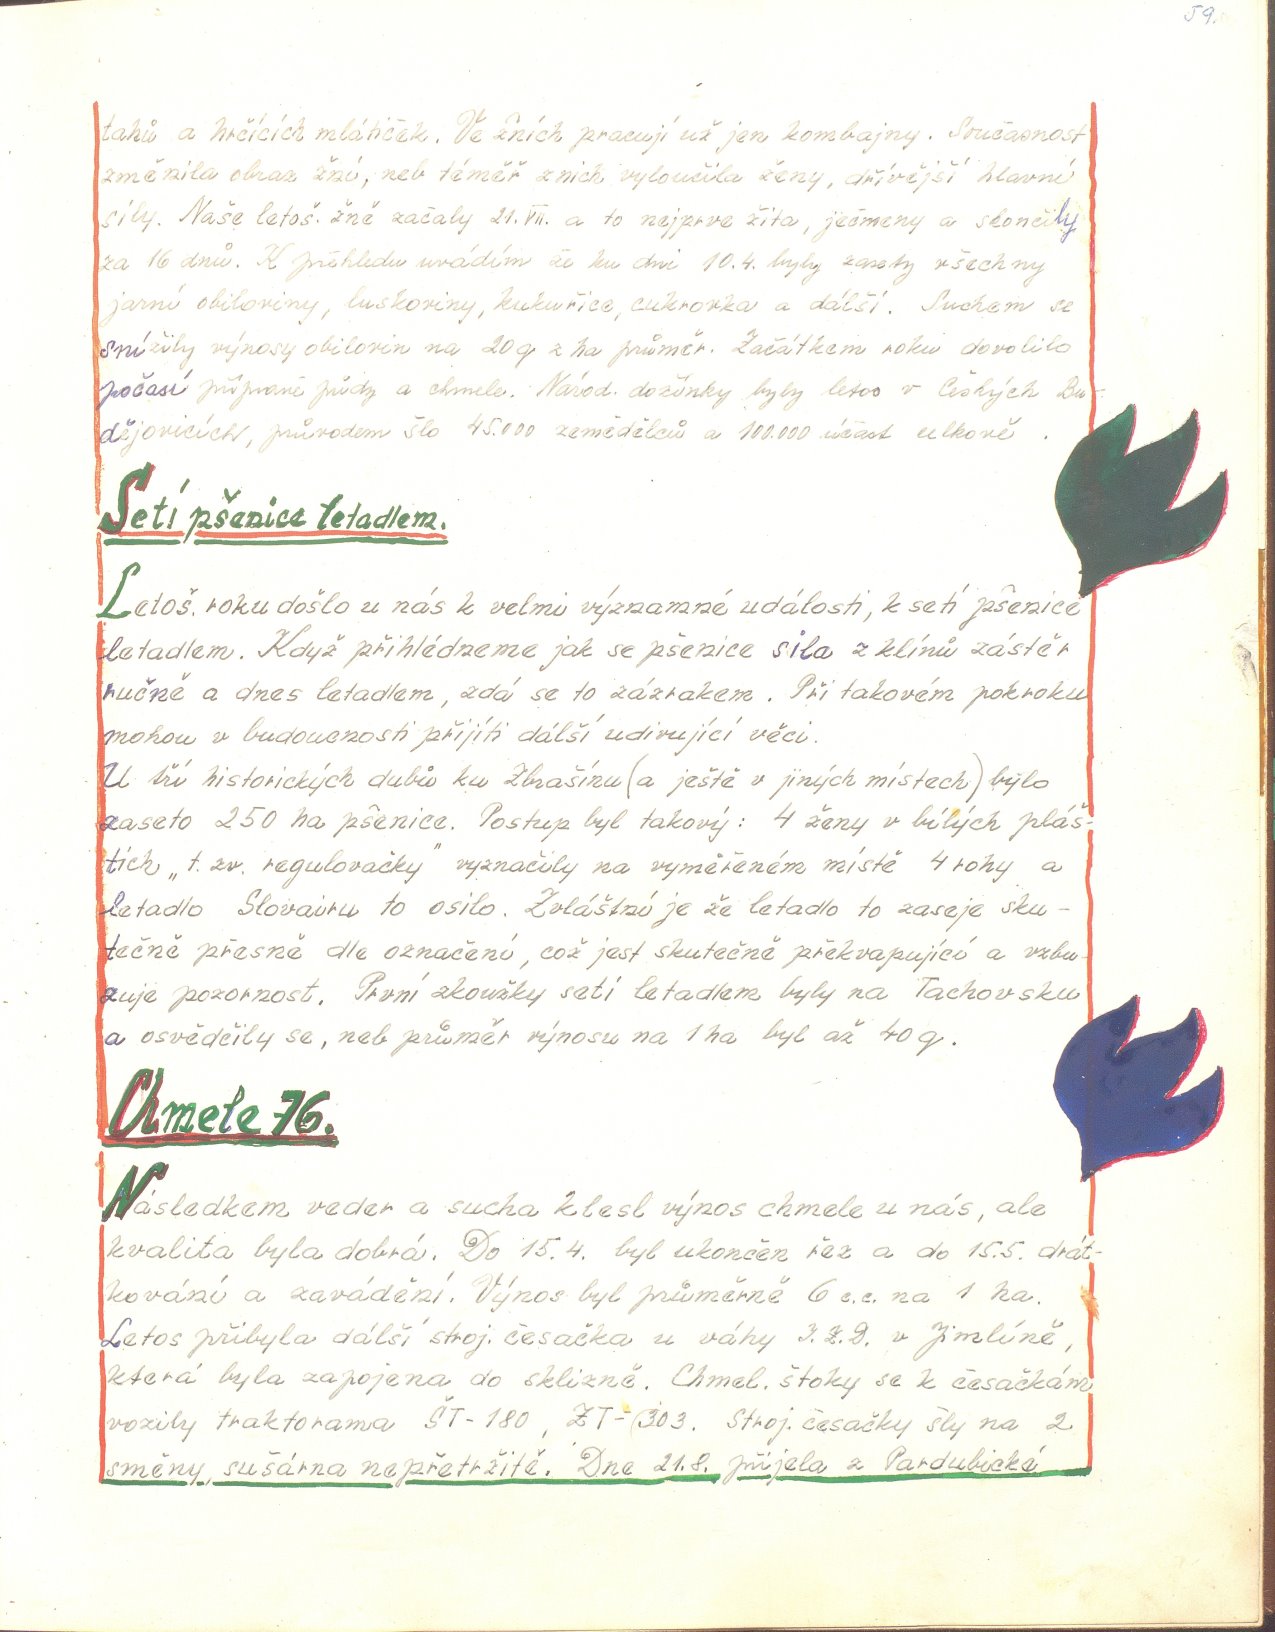 59.
tahů a hrčících mlátiček. Ve žních pracují už jen kombajny. Současnost
změnila obraz žní, neb téměř z nich vyloučila ženy, dřívější hlavní
síly. Naše letoš. žně začaly 21. VII. a to nejprve žita, ječmeny a skončily
za 16 dnů. K přehledu uvádím že ku dni 10.4. byly zasety všechny
jarní obiloviny, luskoviny, kukuřice, cukrovka a dálší. Suchem se
snížily výnosy obilovin na 20 q z ha průměr. Začátkem roku dovolilo
počasí přípravě půdy a chmele. Národ. dožínky byly letos v Českých Bu-
dějovicích, průvodem šlo 45.000 zemědělců a 100.000 účast celkově.
Setí pšenice letadlem.
Letoš. roku došlo u nás k velmi významné události, k setí pšenice
letadlem. Když přihlédneme jak se pšenice sila z klínů zástěr
ručně a dnes letadlem, zdá se to zázrakem. Při takovém pokroku
mohou v budoucnosti přijíti dálší udivující věci.
U tří historických dubů ku Zbrašínu (a ještě v jiných místech) bylo
zaseto 250 ha pšenice. Postup byl takový: 4 ženy v bílých pláš-
tích „t. zv. regulovačky" vyznačily na vyměřeném místě 4 rohy a
letadlo Slovairu to osilo. Zvláštní je že letadlo to zaseje sku-
tečně přesně dle označení, což jest skutečně překvapující a vzbu-
zuje pozornost. První zkoušky setí letadlem byly na Tachovsku
a osvědčily se, neb průměr výnosu na 1 ha byl až 40 q.
Chmele 76.
Následkem veder a sucha klesl výnos chmele u nás, ale
kvalita byla dobrá. Do 15.4. byl ukončen řez a do 15.5. drát-
kování a zavádění. Výnos byl průměrně 6 c.c. na 1 ha.
Letos přibyla dálší stroj. česačka u váhy J.Z.D. v Jimlíně,
která byla zapojena do sklizně. Chmel. štoky se k česačkám
vozily traktorama ŠT-180, ZT-303. Stroj. česačky šly na 2
směny, sušárna nepřetržitě. Dne 21.8. přijela z Pardubické